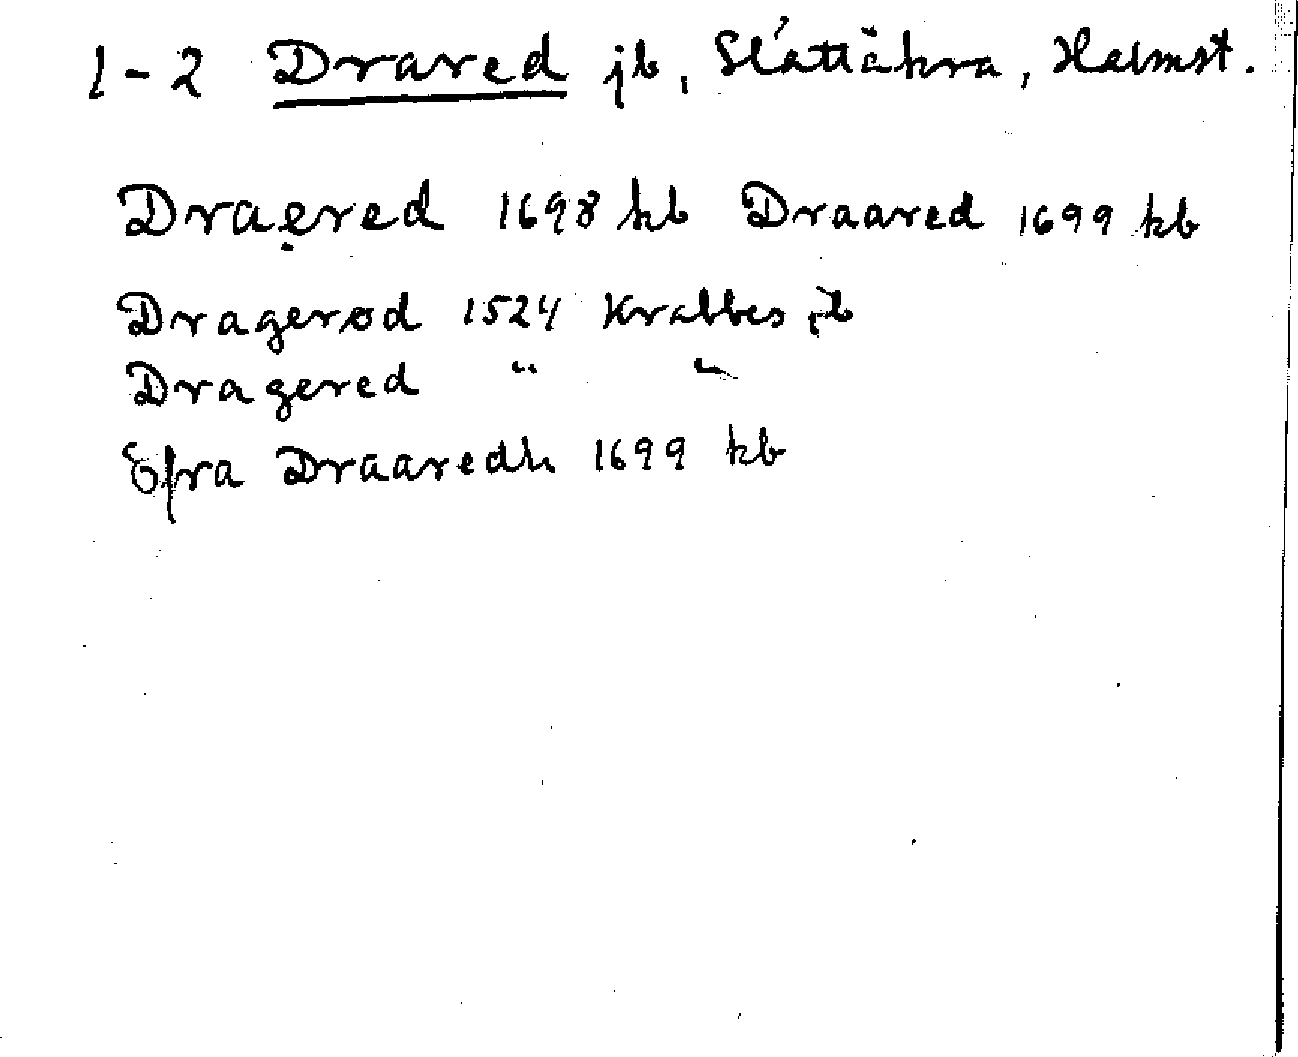 1-2 Drared jb, Slättåkra, Halmst.
Draẹred 1698 kb Draared 1699 kb
Dragerød 1524 Krabbes jb
Dragered " "
Efra Draaredh 1699 kb